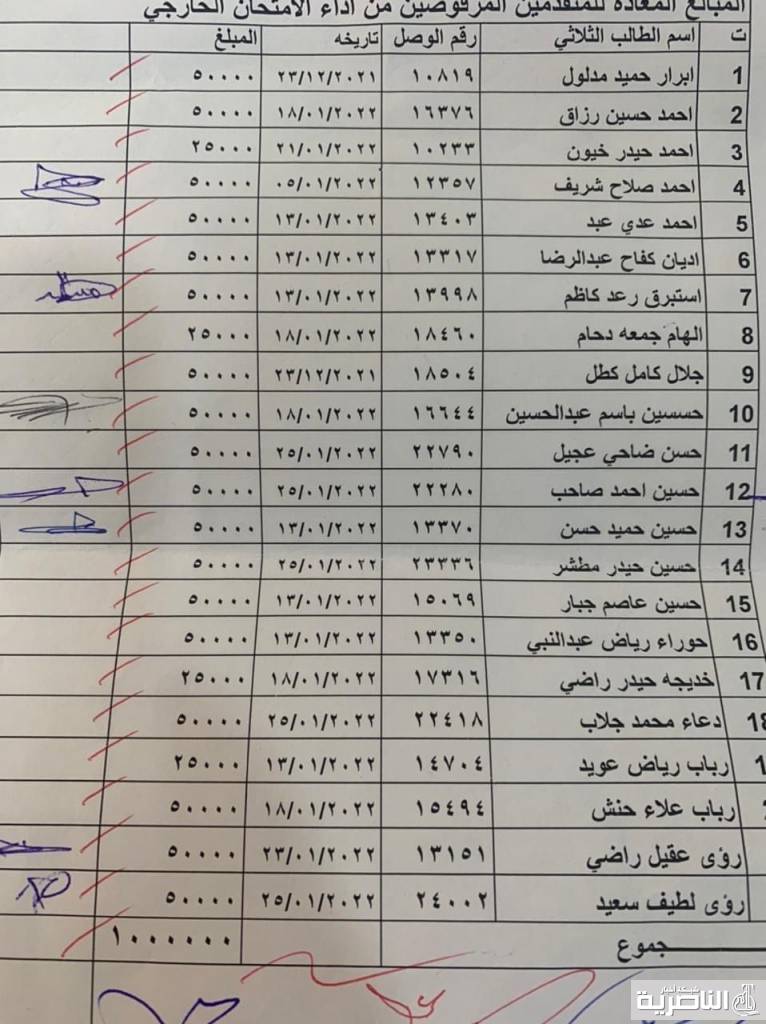 المبالغ المعادة للمتقدمين المرفوضين من اداء الامتحان الخارجي
ت اسم الطالب الثلاثي رقم الوصل تاريخه المبلغ
1 ابرار حميد مدلول ١٠٨١٩ ٢٣/١٢/٢٠٢١ ٥٠٠٠٠
2 احمد حسين رزاق ١٦٣٧٦ ١٨/٠١/٢٠٢٢ ٥٠٠٠٠
3 احمد حيدر خيون ١٠٢٣٣ ٢١/٠١/٢٠٢٢ ٢٥٠٠٠
4 احمد صلاح شريف ١٢٣٥٧ ٠٥/٠١/٢٠٢٢ ٥٠٠٠٠
5 احمد عدي عبد ١٣٤٠٣ ١٣/٠١/٢٠٢٢ ٥٠٠٠٠
6 اديان كفاح عبدالرضا ١٣٣١٧ ١٣/٠١/٢٠٢٢ ٥٠٠٠٠
7 استبرق رعد كاظم ١٣٩٩٨ ١٣/٠١/٢٠٢٢ ٥٠٠٠٠
8 الهام جمعه دحام ١٨٤٦٠ ١٨/٠١/٢٠٢٢ ٢٥٠٠٠
9 جلال كامل كطل ١٨٥٠٤ ٢٣/١٢/٢٠٢١ ٥٠٠٠٠
10 حسسين باسم عبدالحسين ١٦٦٤٤ ١٨/٠١/٢٠٢٢ ٥٠٠٠٠
11 حسن ضاحي عجيل ٢٢٧٩٠ ٢٥/٠١/٢٠٢٢ ٥٠٠٠٠
12 حسين احمد صاحب ٢٢٢٨٠ ٢٥/٠١/٢٠٢٢ ٥٠٠٠٠
13 حسين حميد حسن ١٣٣٧٠ ١٣/٠١/٢٠٢٢ ٥٠٠٠٠
14 حسين حيدر مطشر ٢٣٣٣٦ ٢٥/٠١/٢٠٢٢ ٥٠٠٠٠
15 حسين عاصم جبار ١٥٠٦٩ ١٣/٠١/٢٠٢٢ ٥٠٠٠٠
16 حوراء رياض عبدالنبي ١٣٣٥٠ ١٣/٠١/٢٠٢٢ ٥٠٠٠٠
17 خديجه حيدر راضي ١٧٣١٦ ١٨/٠١/٢٠٢٢ ٢٥٠٠٠
18 دعاء محمد جلاب ٢٢٤١٨ ٢٥/٠١/٢٠٢٢ ٥٠٠٠٠
1 رباب رياض عويد ١٤٧٠٤ ١٣/٠١/٢٠٢٢ ٢٥٠٠٠
رباب علاء حنش ١٥٤٩٤ ١٨/٠١/٢٠٢٢ ٥٠٠٠٠
رؤى عقيل راضي ١٣١٥١ ٢٣/٠١/٢٠٢٢ ٥٠٠٠٠
رؤى لطيف سعيد ٢٤٠٠٢ ٢٥/٠١/٢٠٢٢ ٥٠٠٠٠
جموع ١٠٠٠٠٠٠
شبكة اخبار
الناصرية